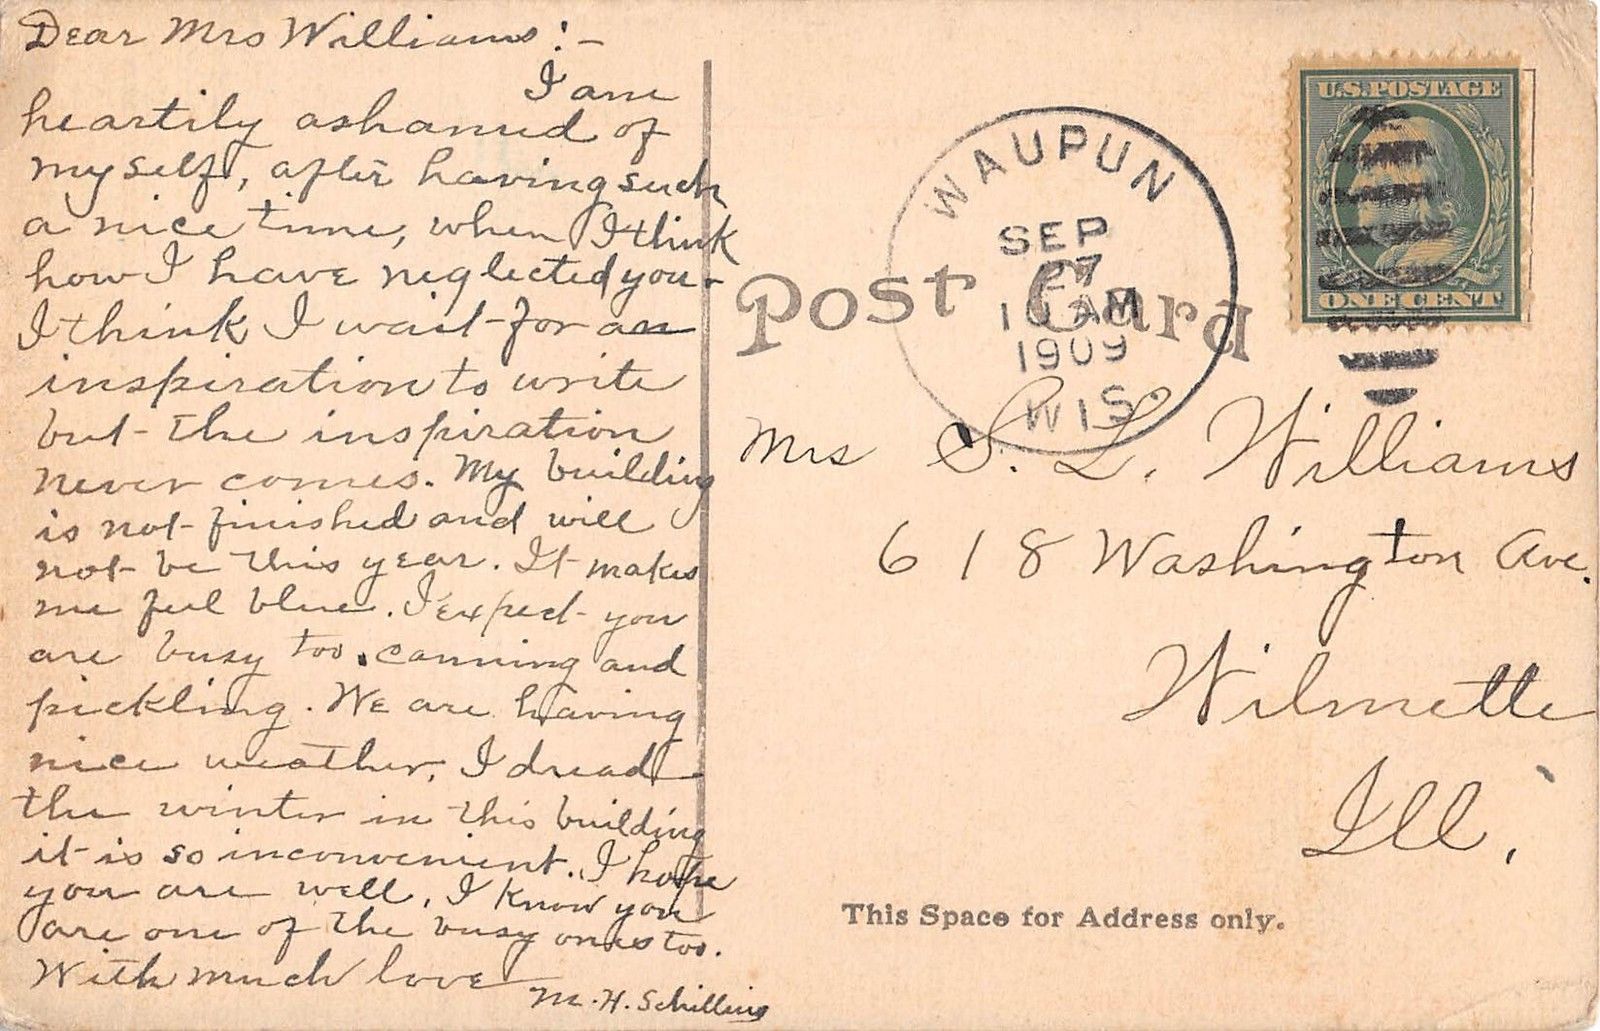 Dear Mrs Williams:-
I am
heartily ashamed of
myself, after having such
a nice time, when I think
how I have neglected you.
I think I wait for an
inspiration to write
but the inspiration
never comes. My building
is not finished and will
not be this year. It makes
me feel blue. I expect you
are busy too. canning and
pickling. We are having
nice weather, I dread
the winter in this building
it is so inconvenient. I hope
you are well, I know you
are one of the busy ones too.
With much love
M. H. Schilling
Post Card
WAUPUN
SEP
27
10 AM
1909
WIS.
U.S. POSTAGE
ONE CENT
Mrs S. L. Williams
618 Washington Ave.
Wilmette
Ill,
This Space for Address only.